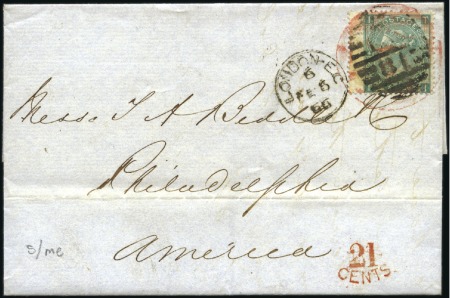 POSTAGE
LONDON·E.C
6
FE 6
66
Messrs T A Biddle & Co
Philadelphia
America
s/me
21
CENTS